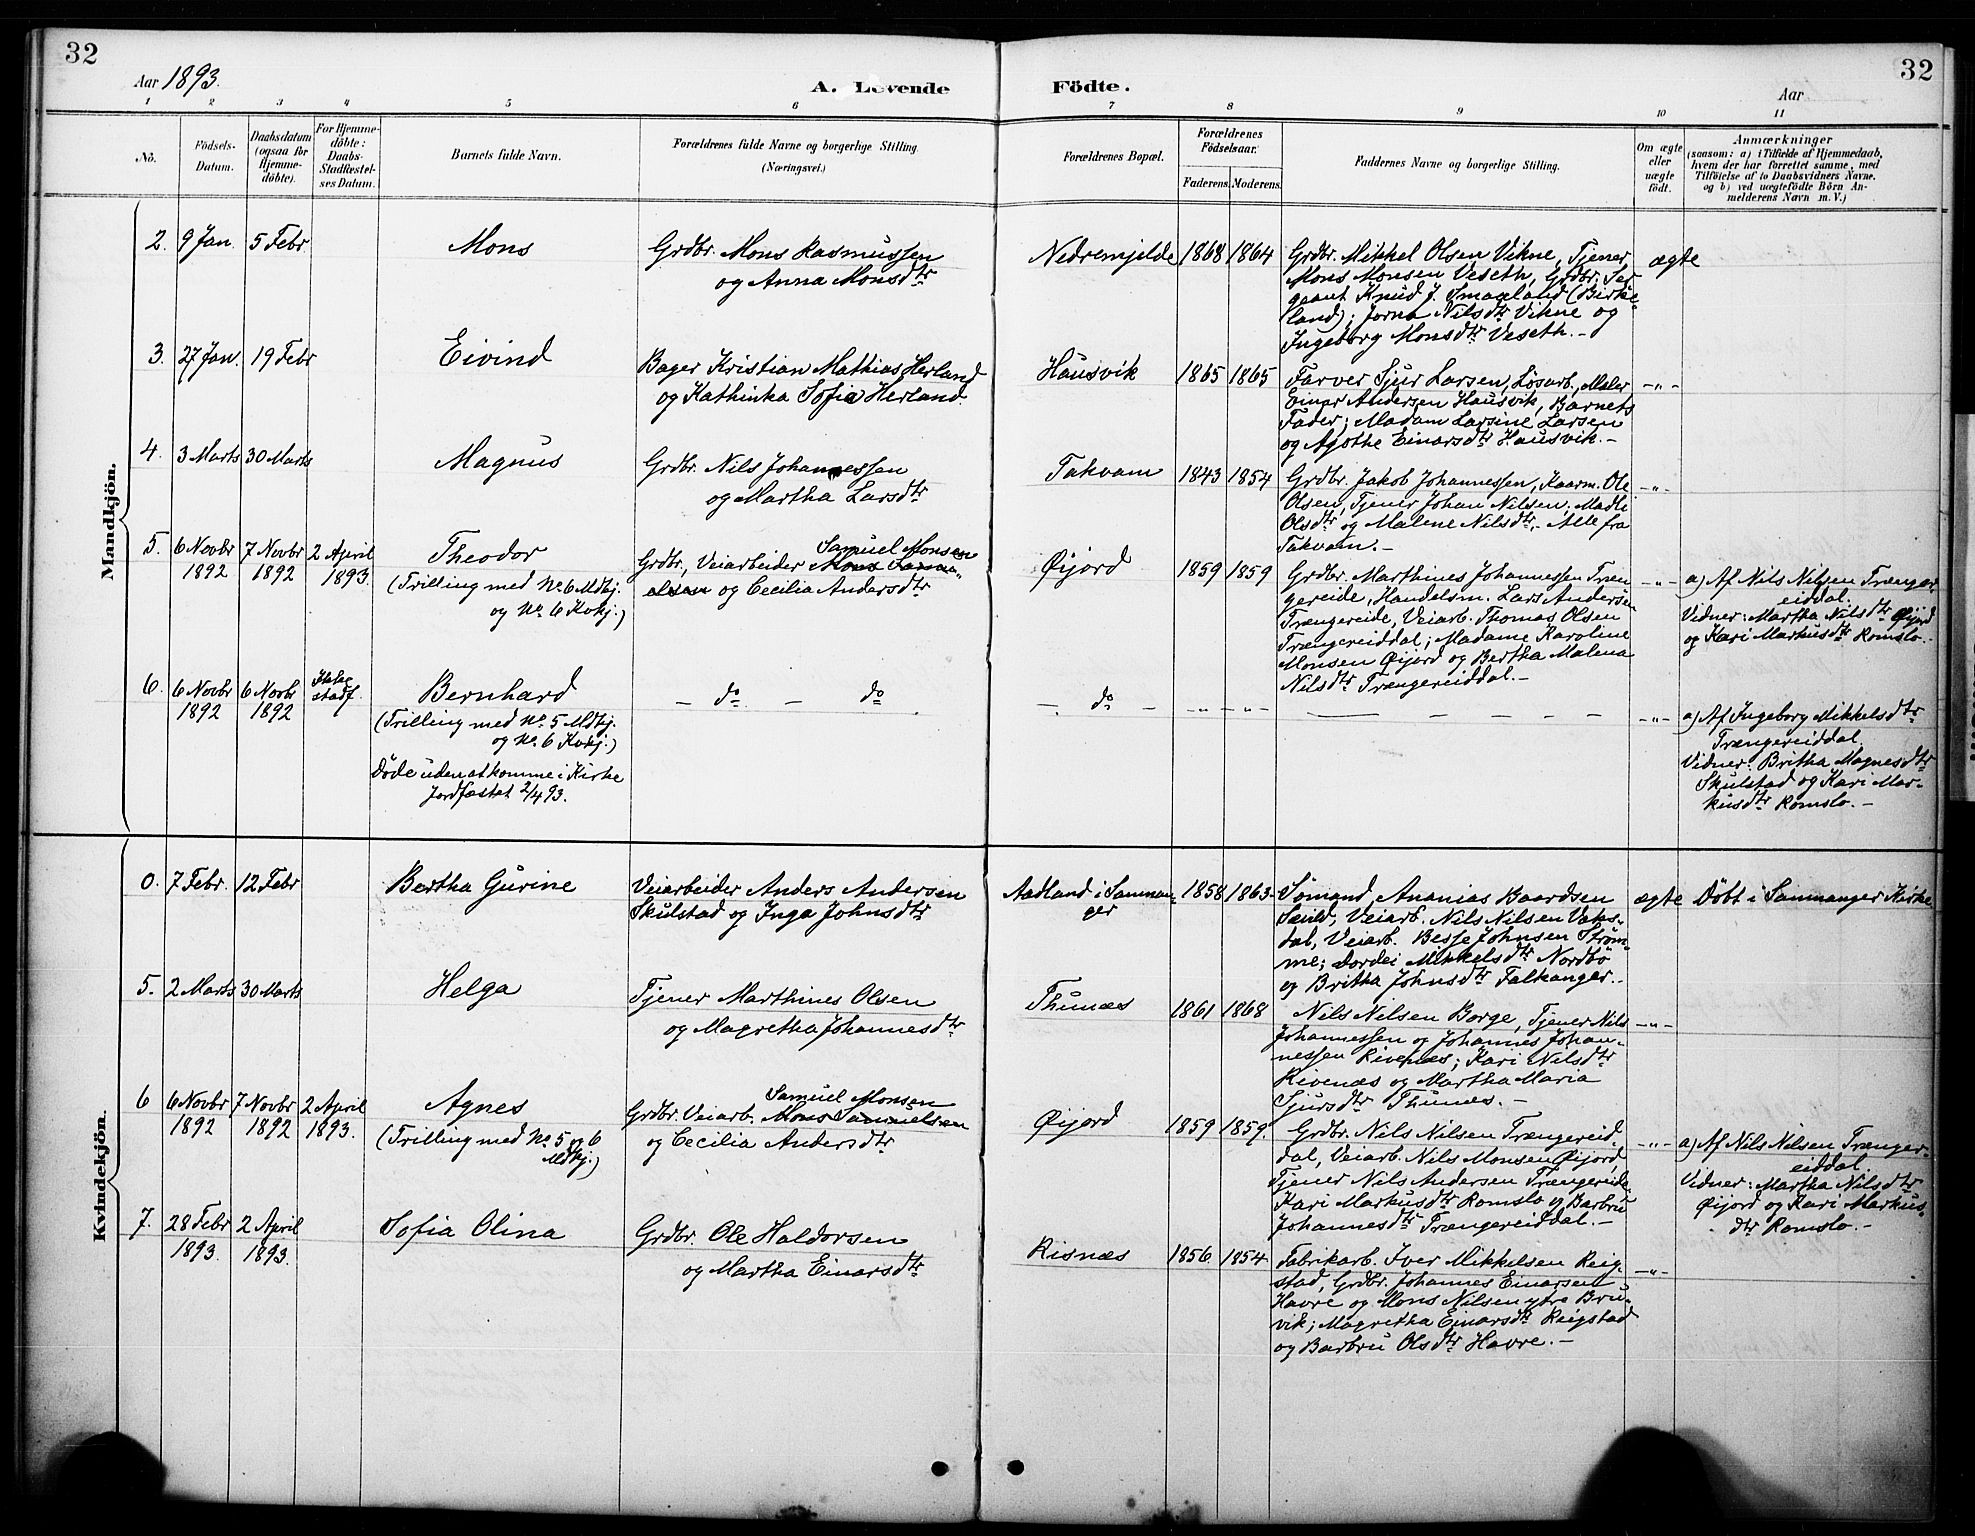 32
Aar 1893.
A. Levende
Födte.
Aar
32
1 2 3 4 5 6 7 8 9 10 11
No.
Födsels-Datum.
Daabsdatum (ogsaa for Hjemme-döbte).
For Hjemme-döbte: Daabs-Stadfæstel-ses Datum.
Barnets fulde Navn.
Forældrenes fulde Navne og borgerlige Stilling.
(Næringsvei.)
Forældrenes Bopæl.
Forældrenes Födselsaar.
Faderens. Moderens.
Faddernes Navne og borgerlige Stilling.
Om ægte eller uægte födt.
Anmærkninger
(saasom: a) i Tilfælde af Hjemmedaab, hvem der har forrettet samme, med Tilföielse af to Daabsvidners Navne. og b) ved uægtefödte Börn An-melderens Navn m. V.)
Mandkjön.
2. 9 Jan. 5 Febr Mons
Grdbr. Mons Rasmussen
og Anna Monsdtr
Nedremjelde 1868 1864
Grdbr. Mikkel Olsen Vikne, Tjener
Mons Monsen Veseth, Grdbr. Ser-
geant Knud J. Smaaland (Birke-
land); Jorna Nilsdtr Vikne og
Ingeborg Monsdtr Veseth. –
ægte
3. 27 Jan. 19 Febr Eivind
Bager Kristian Mathias Herland
og Kathinka Sofie Herland.
Hausvik 1865 1865
Farver Sjur Larsen, Løsarb., Maler
Einar Andersen Hausvik, Barnets
Fader; Madam Larsine Larsen
og Agothe Einarsdtr Hausvik. –
–"–
4. 3 Marts 30 Marts Magnus
Grdbr. Nils Johannessen
og Martha Larsdtr
Takvam 1843 1854
Grdbr. Jakob Johannessen, Kaarm. Ole
Olsen, Tjener Johan Nilsen, Madli
Olsdtr og Malene Nilsdtr. Alle fra
Takvam. –
–"–
5. 6 Novbr 1892 7 Novbr 1892 2 April 1893. Theodor
(Trilling med No. 6 Mdkj.
og No. 6 Kvkj.)
Samuel Monsen
Grdbr., Veiarbeider Mons Samu-
elsen og Cecilia Andersdtr
Øijord 1859 1859
Grdbr. Marthines Johannessen Træn-
gereide, Handelsm. Lars Andersen
Trængereide, Veiarb. Thomas Olsen
Trængereiddal; Madame Karoline
Monsen Øijord og Bertha Malena
Nilsdtr Trængereiddal. –
–"–
a) Af Nils Nilsen Trænger-
eiddal.
Vidner: Martha Nilsdtr Øijord
og Kari Markusdtr Romslo. –
6. 6 Novbr 1892 6 Novbr 1892 Ikke stadf. Bernhard
(Trilling med No. 5 Mdkj.
og No. 6 Kvkj.)
Døde uden at komme i Kirke
Jordfæstet 2/4 93.
– do – do
– do – –"– –"–
–"–
a) Af Ingeborg Mikkelsdtr
Trængereiddal
Vidner: Britha Magnesdtr
Skulstad og Kari Mar-
kusdtr Romslo. –
Kvindekjön.
0. 7 Febr. 12 Febr Bertha Gurine
Veiarbeider Anders Andersen
Skulstad og Inga Johnsdtr
Aadland i Samnan-
ger
1858 1863
Sømand Ananias Baardsen
Sæld, Veiarb. Nils Nilsen Vaks-
dal, Veiarb. Besse Johnsen Strøm-
me; Dordei Mikkelsdtr Nordbø
og Britha Johnsdtr Falkanger. –
ægte
Døbt i Samnanger Kirke
5. 2 Marts 30 Marts Helga
Tjener Marthines Olsen
og Magretha Johannesdtr
Thunæs 1861 1868
Nils Nilsen Borge, Tjener Nils
Johannessen og Johannes Johan-
nessen Rivenæs; Kari Nilsdtr
Rivenæs og Martha Maria
Sjursdtr Thunæs. –
–"–
6 6 Novbr 1892 7 Novbr 1892 2 April 1893. Agnes
(Trilling med No. 5 og 6
Mdkj.)
Samuel Monsen
Grdbr. Veiarb. Mons Samuelsen
og Cecilia Andersdtr
Øijord 1859 1859.
Grdbr. Nils Nilsen Trængereid-
dal, Veiarb. Nils Monsen Øijord,
Tjener Nils Andersen Trængereide,
Kari Markusdtr Romslo og Barbru
Johannesdtr Trængereiddal. –
–"–
a) Af Nils Nilsen Trænger-
eiddal
Vidner: Martha Nilsdtr
Øijord og Kari Markus-
dtr Romslo. –
7. 28 Febr 1893 2 April 1893. Sofia Olina
Grdbr. Ole Haldorsen
og Martha Einarsdtr
Risnæs 1856 1854
Fabrikarb. Iver Mikkelsen Reig-
stad, Grdbr. Johannes Einarsen
Havre og Mons Nilsen ytre Bru-
vik; Magretha Einarsdtr Reigstad
og Barbru Olsdtr Havre. –
–"–